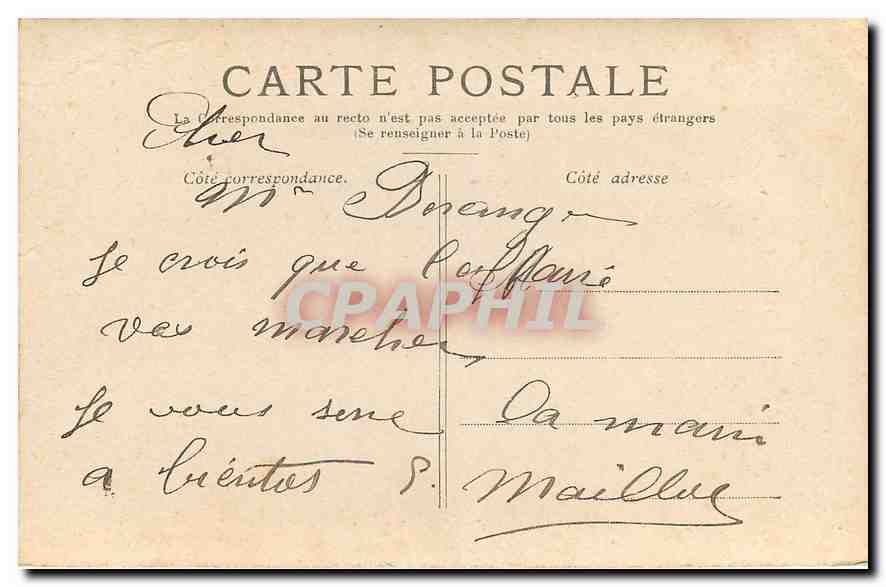 CARTE POSTALE
La Correspondance au recto n'est pas acceptée par tous les pays étrangers
(Se renseigner à la Poste)
Cher
Côté correspondance.
Côté adresse
Mr Beranger
Je crois que l'affaire
CPAPHIL
vas marcher
Je vous serre la main
a bientot P. Mailloc